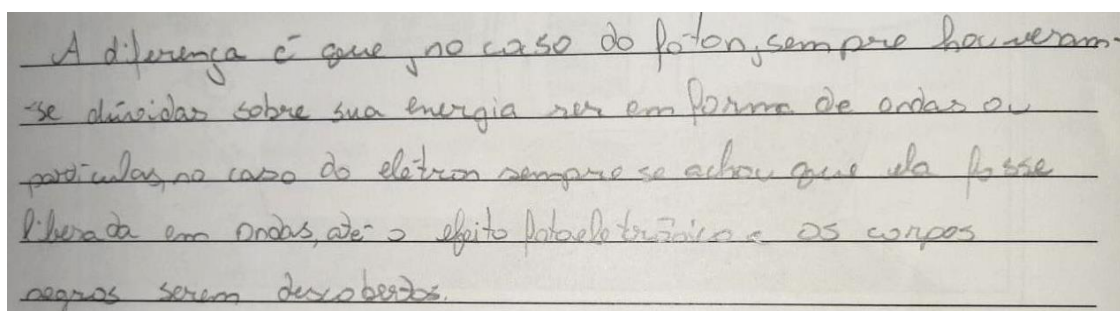 A diferença é que, no caso do fóton, sempre houveram-
-se dúvidas sobre sua energia ser em forma de ondas ou
partículas, no caso do elétron sempre se achou que ela fosse
liberada em ondas, até o efeito fotoeletrônico e os corpos
negros serem descobertos.